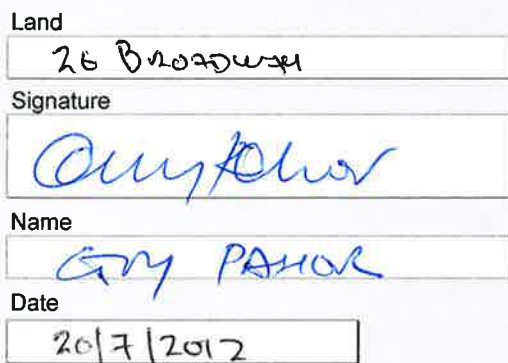 Land
26 Broadway
Signature
Name
GUY PAHOR
Date
20/7/2012